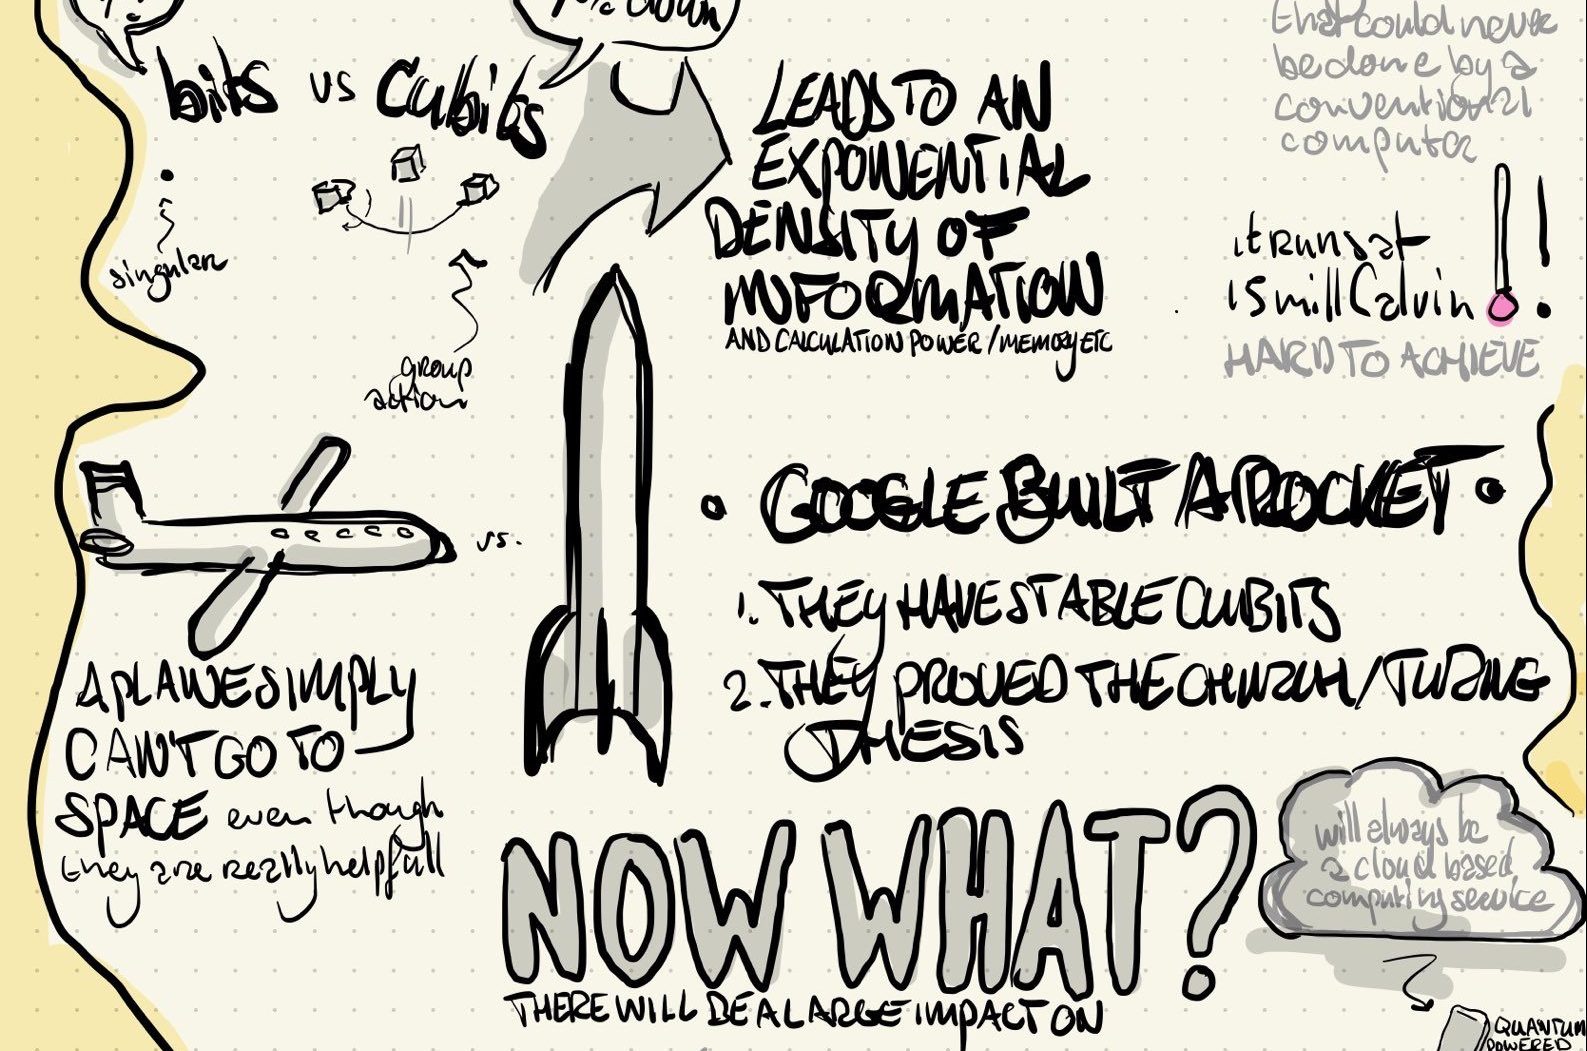 down
that could never
be done by a
conventional
computer
bits vs Cubits
singular
group
action
LEADS TO AN
EXPONENTIAL
DENSITY OF
INFORMATION
AND CALCULATION POWER / MEMORY ETC
it runs at
15 mill Calvin
HARD TO ACHIEVE
vs.
A PLANE SIMPLY
CAN'T GO TO
SPACE even though
they are really helpfull
• GOOGLE BUILT A ROCKET •
1. THEY HAVE STABLE CUBITS
2. THEY PROVED THE CHURCH/TURING
THESIS
NOW WHAT?
THERE WILL BE A LARGE IMPACT ON
will always be
a cloud based
computing service
QUANTUM
POWERED